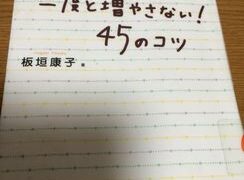 一度と増やさない!
45のコツ
板垣康子 著